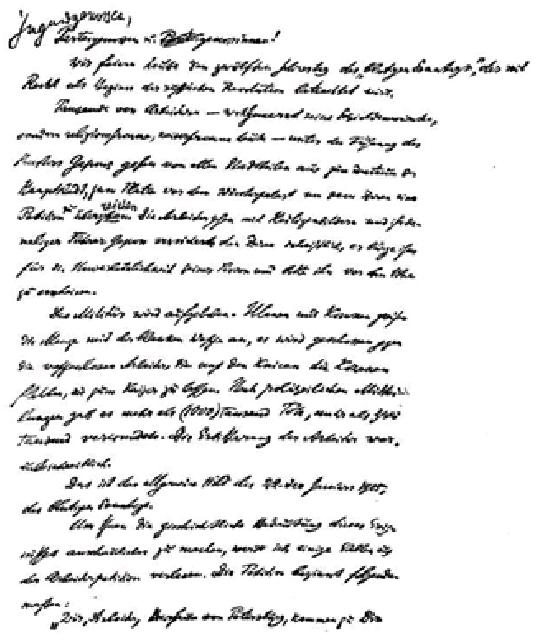 Jugendgenossen,
Parteigenossen u. Parteigenossinnen!
Wir feiern heute den zwölften Jahrestag des „Blutigen Sonntags“, der mit
Recht als Beginn der russischen Revolution betrachtet wird.
Tausende von Arbeitern — wohlgemerkt keine Sozialdemokraten,
sondern religiösfromme, Leute — unter der Führung des
Priesters Gapons gehen von allen Stadtteilen aus zum Zentrum der
Hauptstadt, zum Platz vor dem Winterpalast um dem Zaren eine
Petition zu übergeben. Die Arbeiter gehen mit Heiligenbildern und ihr da-
maliger Führer Gapon den Zaren schriftlich, er bürge ihm
für die Unverletzlichkeit seiner Person und bitte ihn vor dem Volke
zu erscheinen.
Das Militär wird aufgeboten. Ulanen und Kosaken greifen
die Menge mit der blanken Waffe an, es wird geschossen gegen
die waffenlosen Arbeiter, die auf den Knieen die Kosaken
flehten, sie zum Kaiser zu lassen. Nach polizeilichen Mittei-
lungen gab es mehr als (1000) tausend Tote, mehr als zwei
tausend verwundete. Die Erbitterung der Arbeiter war
unbeschreiblich.
Das ist das allgemeine Bild des 22. des Januars 1905,
des Blutigen Sonntags.
Um Ihnen die geschichtliche Bedeutung dieses Ereig-
nisses anschaulicher zu machen, werde ich einige Stellen aus
der Arbeiterpetition verlesen. Die Petition beginnt folgender-
massen:
„Wir, Arbeiter, Bewohner von Petersburg, kommen zu Dir.